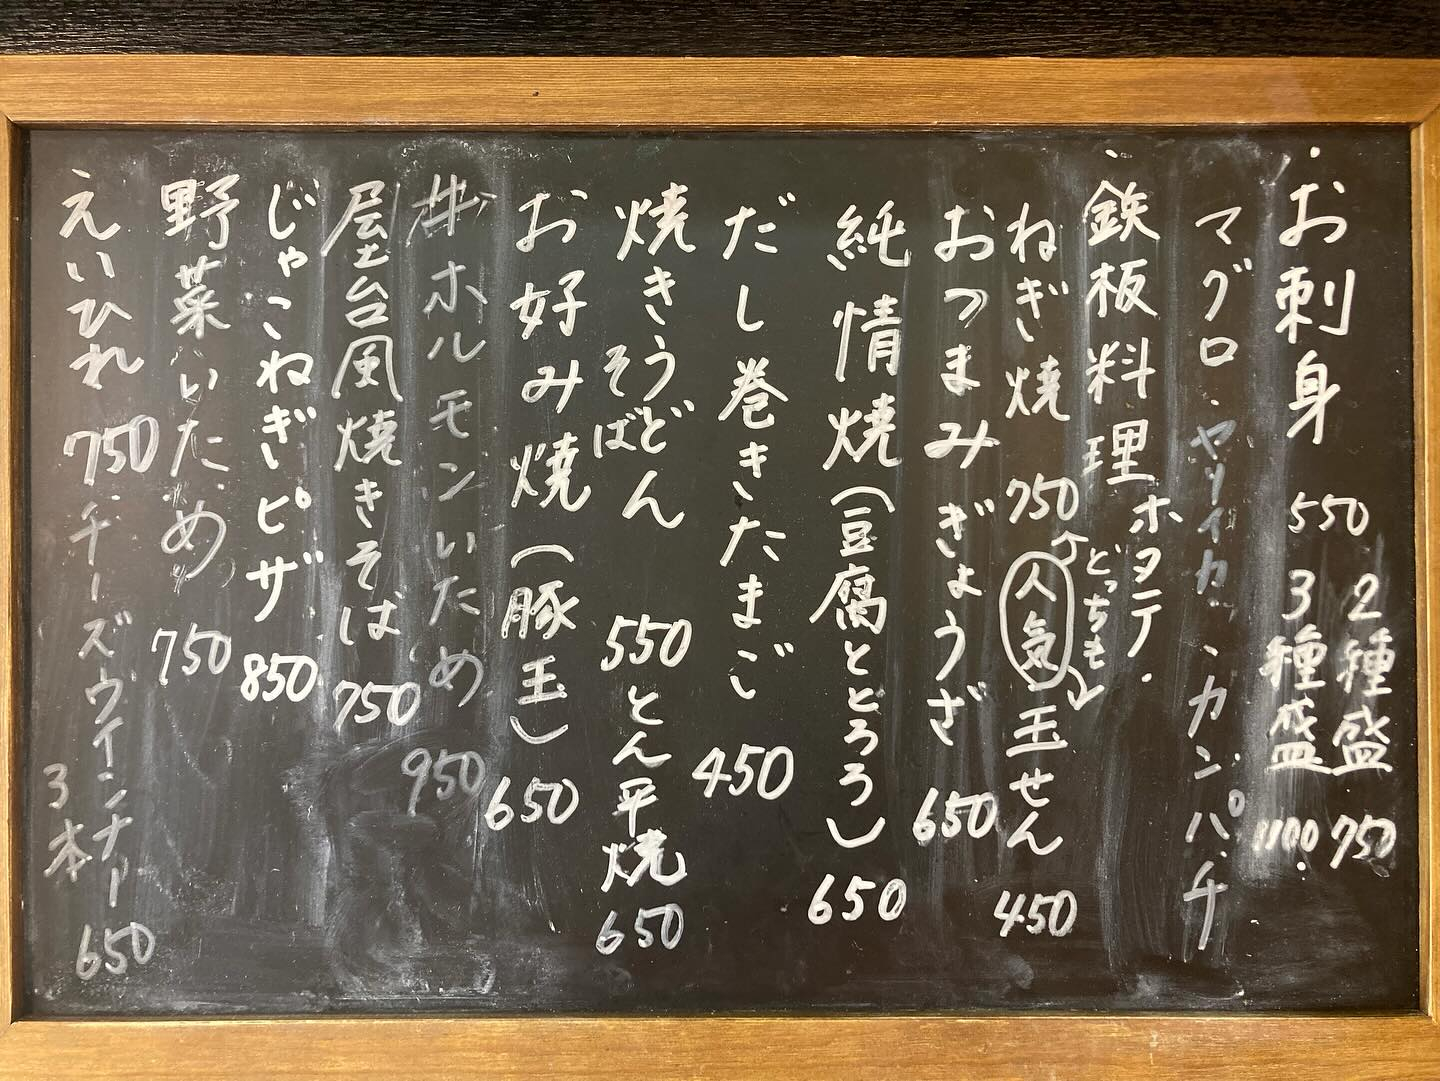 お刺身 550 2種盛 750
3種盛 1100
マグロ・ヤリイカ・カンパチ
ホタテ
鉄板料理
ねぎ焼 750 人気 玉せん 450
どっちも
おつまみぎょうざ 650
純情焼(豆腐ととろろ) 650
だし巻きたまご 450
焼きうどん 550 とん平焼 650
そば
お好み焼(豚玉) 650
丼ホルモンいため 950
屋台風焼きそば 750
じゃこねぎピザ 850
野菜いため 750
えいひれ 750 チーズウインナー 650
3本